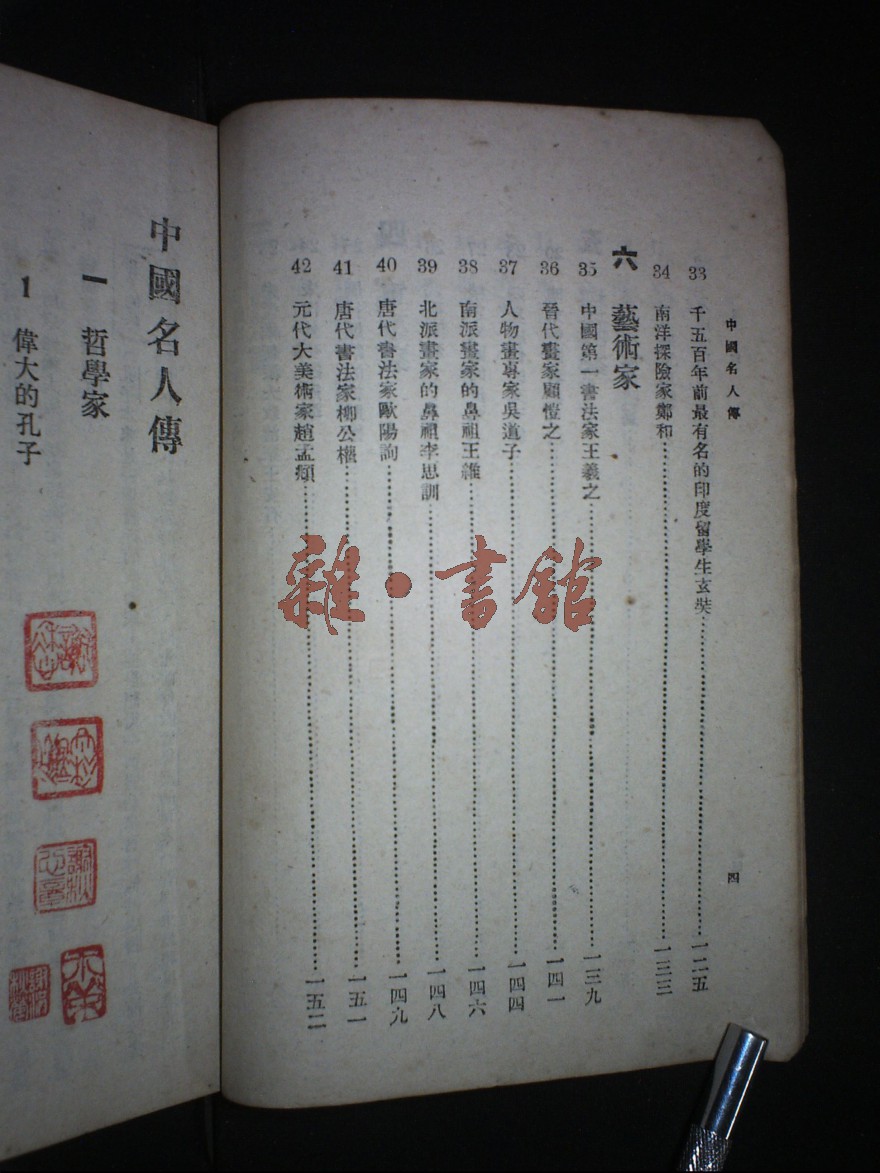 中國名人傳
四
33 千五百年前最有名的印度留學生玄奘 一二五
34 南洋探險家鄭和 一三三
六 藝術家
35 中國第一書法家王羲之 一三九
36 晉代畫家顧愷之 一四一
37 人物畫專家吳道子 一四四
38 南派畫家的鼻祖王維 一四六
39 北派畫家的鼻祖李思訓 一四八
40 唐代書法家歐陽詢 一四九
41 唐代書法家柳公權 一五一
42 元代大美術家趙孟頫 一五二
中國名人傳
一 哲學家
1 偉大的孔子
雜·書館